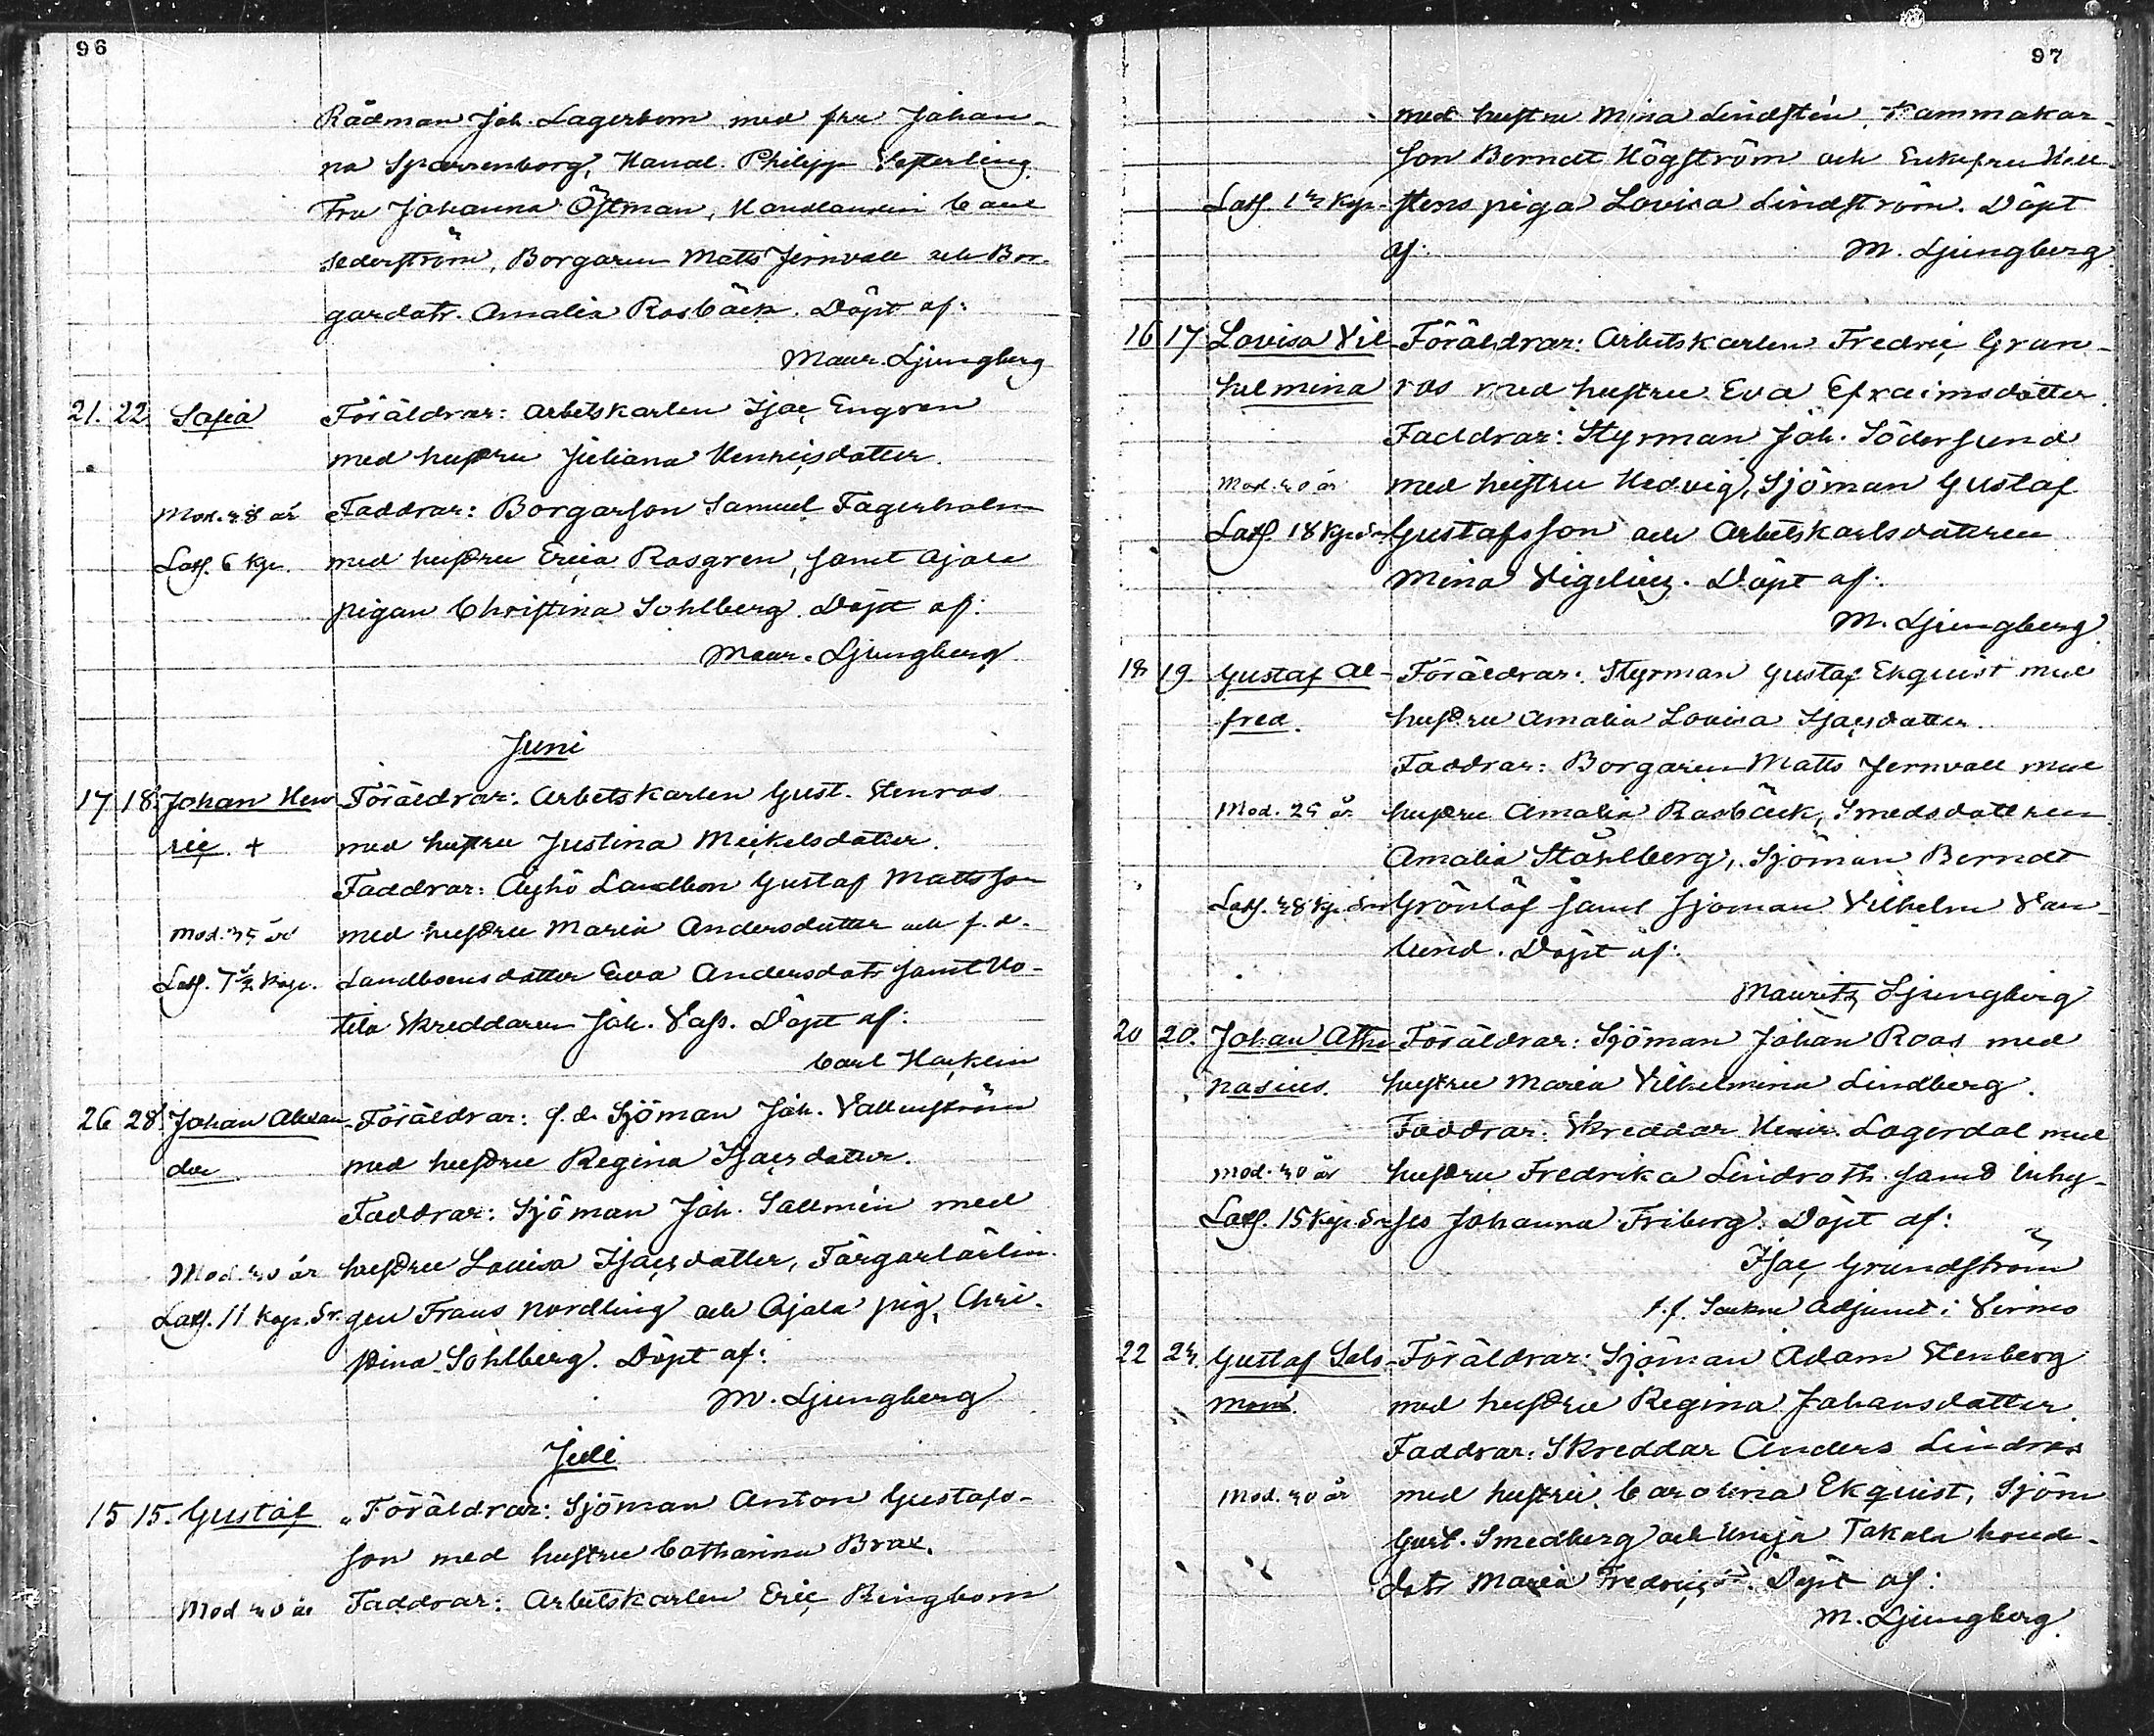 96
Rådman Joh. Lagerbom med fru Johan-
na Sparrenborg, Handl. Philipp Vesterling.
Fru Johanna Östman, Handlanden Carl
Sederström, Borgaren Matts Jernvall och Bor-
garedotr. Amalia Rosbäck. Döpt af:
Maur. Ljungberg
21. 22. Sofia Föräldrar: Arbetskarlen Isac Engren
med hustru Juliana Henricsdotter.
Mod. 28 år Faddrar: Borgarson Samuel Fagerholm
Lasf. 6 kp. med hustru Erica Rosgren, samt Ajala
pigan Christina Sohlberg. Döpt af:
Maur. Ljungberg
Juni
17 18. Johan Hen- Föräldrar: Arbetskarlen Gust. Stenroos
ric + med hustru Justina Mickelsdotter.
Faddrar: Ayhö Landbon Gustaf Mattsson
Mod. 35 år med hustru Maria Andersdotter och f.d.
Lasf. 7½ kop. Landboensdotter Eva Andersdotr samt Ho-
tila Skreddaren Joh. Vass. Döpt af:
Carl Hacklin
26 28. Johan Alexan- Föräldrar: f.d. Sjöman Joh. Vallenström
der med hustru Regina Isacsdotter.
Faddrar: Sjöman Joh. Sallmén med
Mod. 40 år hustru Lovisa Isacsdotter, Färgarlärlin-
Lasf. 11 kop. Sr. gen Frans Nordling och Ajala pig. Chri-
stina Sohlberg. Döpt af:
M. Ljungberg
Juli
15 15. Gustaf Föräldrar: Sjöman Anton Gustafs-
son med hustru Catharina Brax.
Mod 40 år Faddrar: Arbetskarlen Eric Ringbom
97
med hustru Mina Lindstén, Kammakar-
son Berndt Högström och Enkefru Hell-
stens piga Lovisa Lindström. Döpt
af: M. Ljungberg
16 17 Lovisa Vil- Föräldrar: Arbetskarlen Fredric Gran-
helmina roos med hustru Eva Efraimsdotter.
Faddrar: Styrman Joh. Södersund
Mod. 40 år med hustru Hedvig, Sjöman Gustaf
Lasf. 18 kp. Sr Gustafsson och Arbetskarlsdottren
Mina Vigelius. Döpt af:
M. Ljungberg
18 19 Gustaf Al- Föräldrar: Styrman Gustaf Ekquist med
fred. hustru Amalia Lovisa Isacsdotter.
Faddrar: Borgaren Matts Jernvall med
Mod. 25 år hustru Amalia Rosbäck, Smedsdottren
Amalia Ståhlberg, Sjöman Berndt
Lasf. 28 kp. Sr Grönlöf samt Sjöman Vilhelm Van-
lund. Döpt af:
Mauritz Ljungberg
20 20. Johan Atha- Föräldrar: Sjöman Johan Roos med
nasius. hustru Maria Vilhelmina Lindberg.
Faddrar: Skreddar Henr. Lagerdal med
Mod. 40 år hustru Fredrika Lindroth samt inhy-
Lasf. 15 kp. Sr ses Johanna Friberg. Döpt af:
Isac Grundström
t.f. Sockne Adjunct i Virmo
22 24. Gustaf Salo- Föräldrar: Sjöman Adam Stenberg
mon. med hustru Regina Johansdotter.
Faddrar: Skreddar Anders Lindroos
Mod. 40 år med hustru Carolina Ekquist, Sjöm
Gust. Smedberg och Takala
dotr Maria Fredricsd. Döpt af:
M. Ljungberg